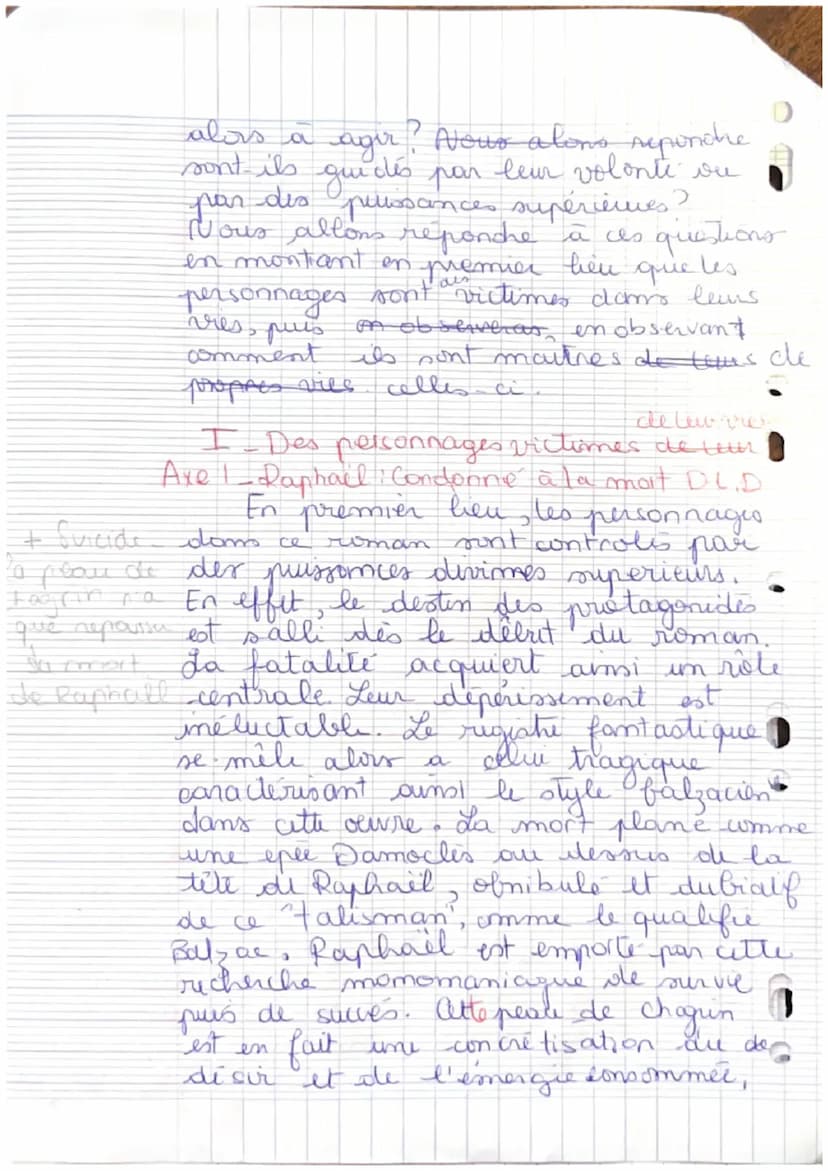 alors à agir? Nous alons reponche
sont-ils guidés par leur volonté ou
par des puissances supérieures?
Nous allons réponche à ces questions
en montrant en premier lieu que les
personnages sont des victimes dans leurs
vies, puis on observeras, en observant
comment ils sont maîtres de leurs de
propres vies. celles-ci.
de leur vie
I - Des personnages victimes de leur
Axe 1 - Raphaël : Condanné à la mort D L.D
En premier lieu, les personnages
dans ce roman sont controlés par
des puissances divines superieurs.
En effet, le destin des protagonistes
est scellé dès le début du roman.
La fatalité acquiert ainsi un rôle
centrale. Leur dépérissement est
inéluctable. Le registre fantastique
se mêle alors a celui tragique
caractérisant ainsi le style balzacien
dans cette oeuvre. La mort plane comme
une epée Damoclès au dessus de la
tête de Raphaël, obnibulé et
de ce "talisman", comme le qualifie
Balzac. Raphaël est emporté par cette
recherche momomaniaque de survie
puis de succès. Cette peau de chagrin
est en fait une concrétisation du de
désir et de l'énergie consommée,
+ Suicide
la peau de
chagrin n'a
que repoussé
sa mort
de Raphaël